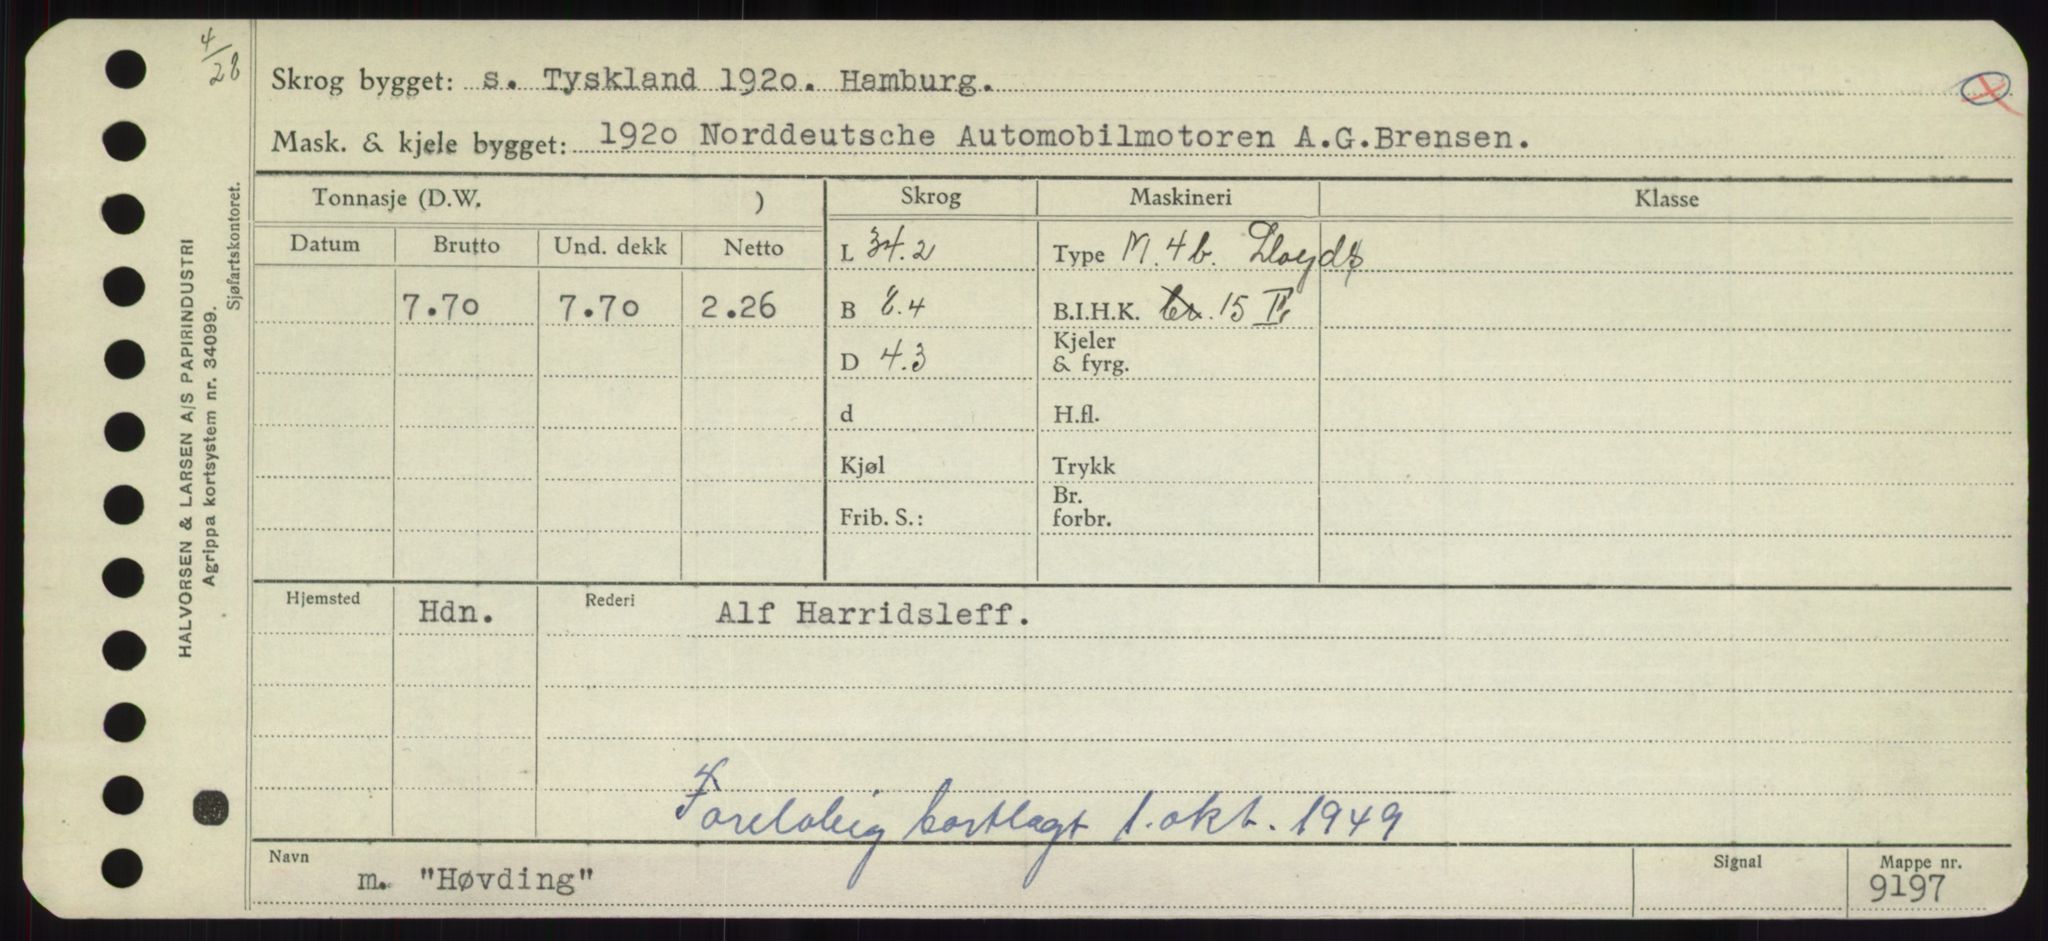 4/28
Skrog bygget: s. Tyskland 1920. Hamburg.
Mask. & kjele bygget: 1920 Norddeutsche Automobilmotoren A.G.Brensen.
Tonnasje (D.W. )
Skrog
Maskineri
Klasse
Datum
Brutto
Und. dekk
Netto
L 34.2
Type M. 4b. Lloyds
7.70
7.70
2.26
B 8.4
B.I.H.K. 15
D 4.3
Kjeler
& fyrg.
d
H.fl.
Kjøl
Trykk
Frib. S.:
Br.
forbr.
Hjemsted
Hdn.
Rederi
Alf Harridsleff.
Foreløbig bortlagt 1. okt. 1949
Navn
m. "Høvding"
Signal
Mappe nr.
9197
HALVORSEN & LARSEN A/S PAPIRINDUSTRI
Agrippa kortsystem nr. 34099.
Sjøfartskontoret.